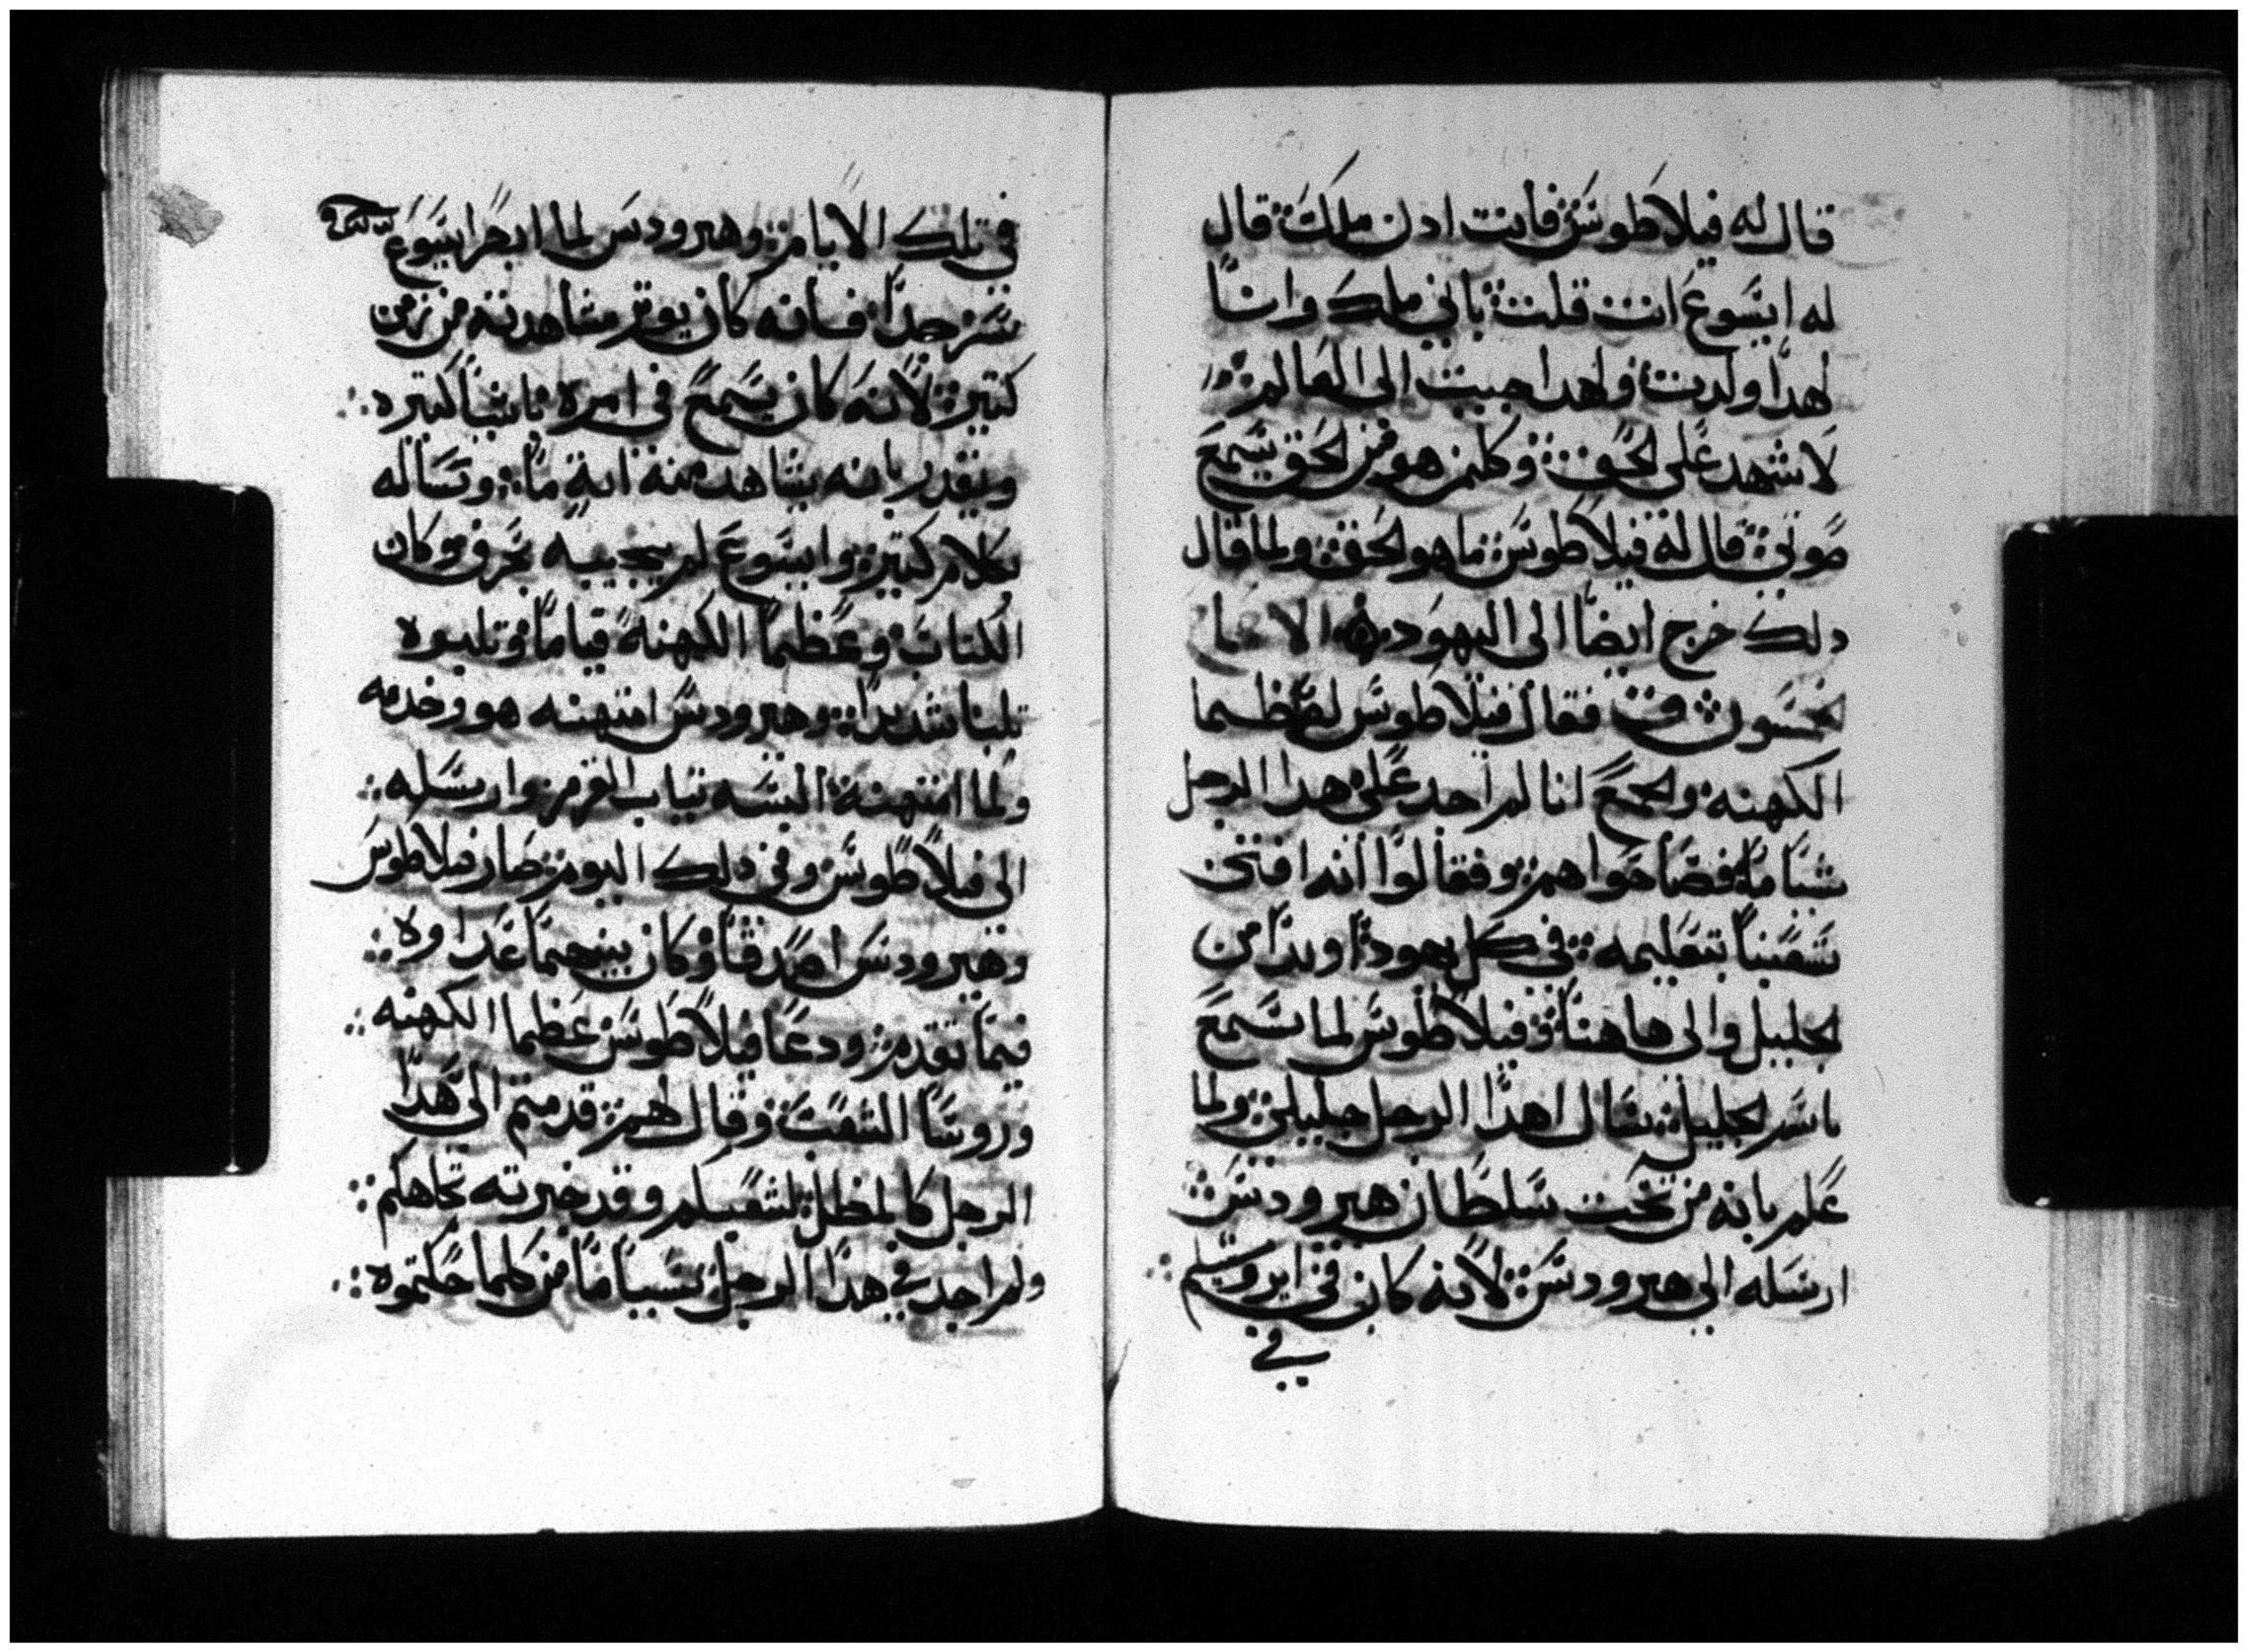 قال له فيلاطوس فانت ادن ملك قال
له ايسوع انت قلت باني ملك وانا
لهدا ولدت ولهدا جيت الى العالم
لاشهد على الحق وكلمن هو من الحق يسمع
صوتي قال له فيلاطوس ما هو الحق ولما قال
دلك خرج ايضا الى اليهود الاصحا
فقال فيلاطوس لعظما
الكهنه والجمع انا لم اجد على هدا الرجل
شيا ما فصاحوا هم وفقالوا انه افتن
شعبنا بتعليمه في كل يهودا وبدا من
الجليل والى هاهنا وفيلاطوس لما سمع
باسم الجليل سال اهدا الرجل جليلي ولما
علم بانه من تحت سلطان هيرودس
ارسله الى هيرودس لانه كان في ايروسليم
في
في تلك الايام وهيرودس لما ابصر ايسوع
سر جدا فانه كان يوثر مشاهدته من زمن
كتير لانه كان يسمع في امره باشيا كتيره
ويقدر بانه يشاهد منه اية ما وساله
بكلام كتير وايسوع لم يجيبه بحرف وكان
الكتاب وعظما الكهنه قياما وتلبوه
تلبا شديدا وهيرودس امتهنه هو وخدمه
ولما امتهنه البسه تياب القرمز وارسله
الى فيلاطوس وفي دلك اليوم صار فيلاطوس
وهيرودس اصدقا وكان بينهما عداوه
فيما تقدم ودعا فيلاطوس عظما الكهنه
وروسا الشعب وقال لهم قدمتم الى هدا
الرجل كالمظل لشعبكم وقد خبرته تجاهكم
ولم اجد في هدا الرجل سببا ما من كلما حكمتوه